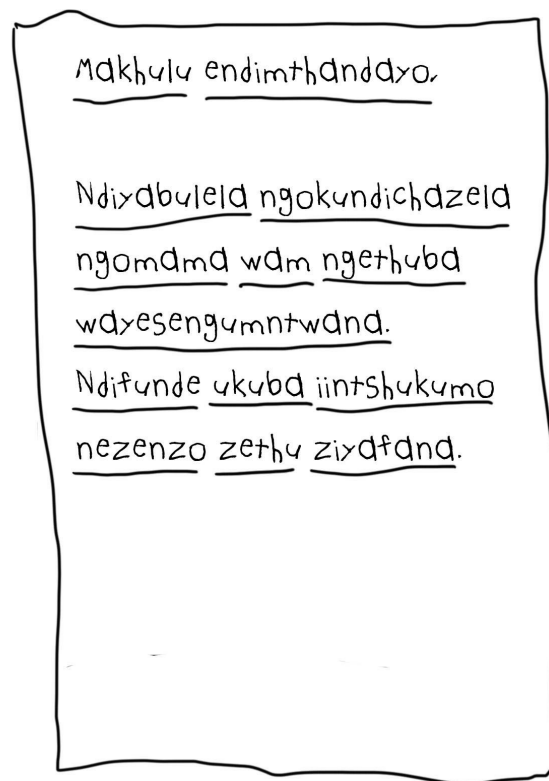 Makhulu endimthandayo,
Ndiyabulela ngokundichazela
ngomama wam ngethuba
wayesengumntwana.
Ndifunde ukuba iintshukumo
nezenzo zethu ziyafana.